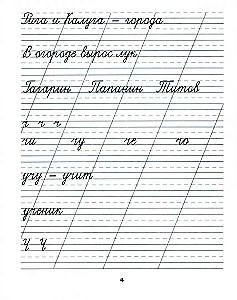 Рига и Калуга – города
В огороде вырос лук.
Гагарин Папанин Титов
ч ч ч
чи чу че чо
учу – учит
ученик
Ч Ч
4